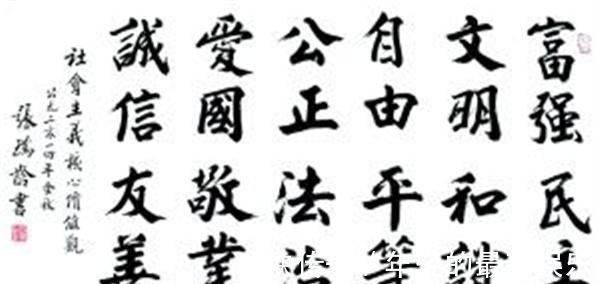 富强民主
文明和谐
自由平等
公正法治
愛國敬業
誠信友善
社會主義核心價值觀
公元二零一四年金秋
張瑞齡書